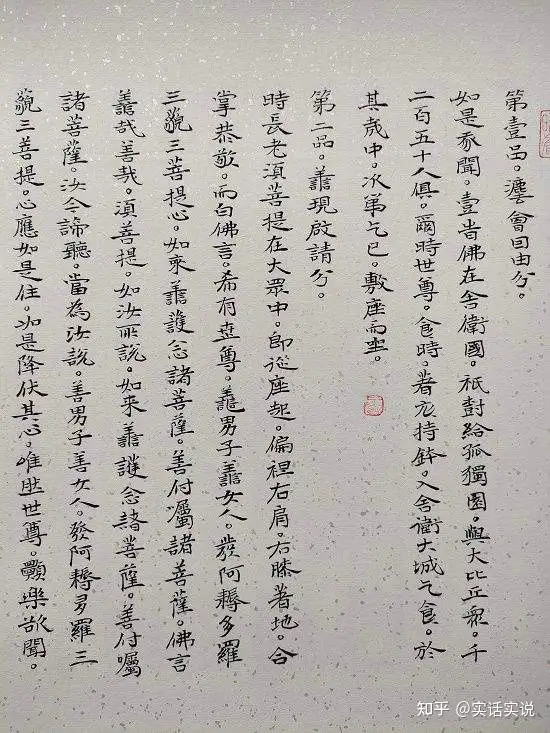 第壹品。灋會因由分。
如是我聞。壹時佛在舍衛國。祇樹給孤獨園。與大比丘眾。千
二百五十人俱。爾時世尊。食時。著衣持鉢。入舍衛大城乞食。於
其城中。次第乞已。敷座而坐。
第二品。善現啟請分。
時長老須菩提在大眾中。即從座起。偏袒右肩。右膝著地。合
掌恭敬。而白佛言。希有世尊。善男子善女人。發阿耨多羅
三藐三菩提心。如來善護念諸菩薩。善付囑諸菩薩。佛言
善哉善哉。須菩提。如汝所說。如来善護念諸菩薩。善付囑
諸菩薩。汝今諦聽。當為汝說。善男子善女人。發阿耨多羅三
藐三菩提。心應如是住。如是降伏其心。唯然世尊。願樂欲聞。
知乎 @实话实说